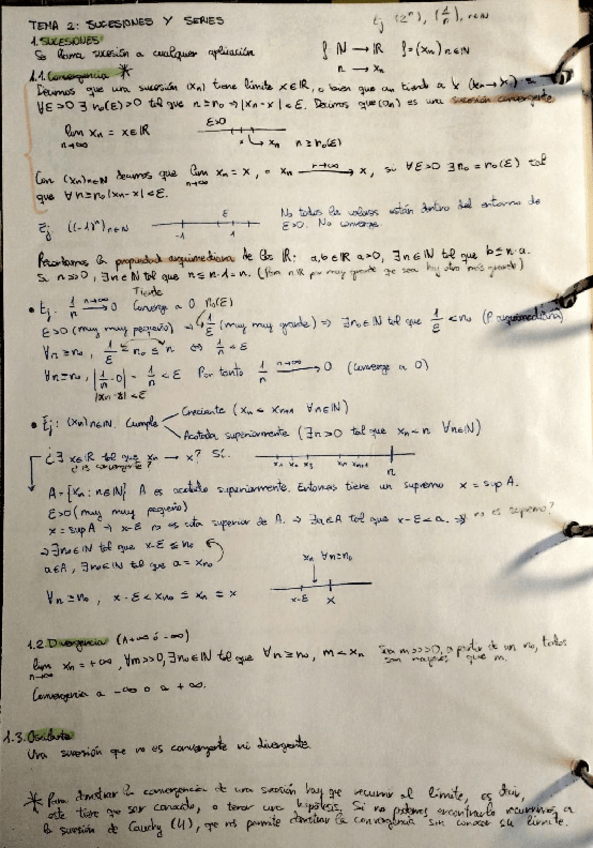 TEMA 2: SUCESIONES Y SERIES
Ej (2ⁿ), (1/n), n∈ℕ
1. SUCESIONES
Se llama sucesión a cualquier aplicación f: ℕ → ℝ f = (xn) n∈ℕ
n → xn
1.1. Convergencia *
Decimos que una sucesión (xn) tiene límite x∈ℝ, o bien que xn tiende a x (xn→x) si
∀ε>0 ∃ n₀(ε)>0 tal que n≥n₀ → |xn-x|<ε. Decimos que (an) es una sucesión convergente
lim n→∞ xn = x∈ℝ
ε>0
x xn n≥n₀(ε)
Con (xn)n∈ℕ decimos que lim n→∞ xn = x, o xn n→∞ → x, si ∀ε>0 ∃n₀=n₀(ε) tal
que ∀n≥n₀ |xn-x|<ε.
Ej ((-1)ⁿ)n∈ℕ
ε
-1 1
No todos los valores están dentro del entorno de
ε>0. No converge.
Recordamos la propiedad arquimediana de los ℝ: a,b∈ℝ a>0, ∃n∈ℕ tal que b≤n·a.
• Ej: 1/n n→∞ → 0 Tiende Converge a 0 n₀(ε)
ε>0 (muy muy pequeño) → 1/ε (muy muy grande) ⇒ ∃n₀∈ℕ tal que 1/ε < n₀ (P arquimediana)
∀n≥n₀, 1/ε ≤ n₀ ≤ n ⇔ 1/n < ε
∀n≥n₀, |1/n - 0| = 1/n < ε Por tanto 1/n n→∞ → 0 (converge a 0)
|xn-x|<ε
• Ej: (xn)n∈ℕ. Cumple
Creciente (xn < xn+1 ∀n∈ℕ)
Acotada superiormente (∃n>0 tal que xn<n ∀n∈ℕ)
¿∃ x∈ℝ tal que xn → x? Sí.
¿es convergente?
x₁ x₂ x₃ xn xn+1 n
A = {xn : n∈ℕ} A es acotado superiormente. Entonces tiene un supremo x = sup A.
ε>0 (muy muy pequeño)
x = sup A → x-ε no es cota superior de A. ⇒ ∃a∈A tal que x-ε<a. ⇒ no es supremo?
⇒ ∃n₀∈ℕ tal que x-ε ≤ n₀
a∈A, ∃n₀∈ℕ tal que a = xn₀
xn ∀n≥n₀
∀n≥n₀, x-ε < xn₀ ≤ xn ≤ x
x-ε x
1.2 Divergencia (A +∞ ó -∞)
lim n→∞ xn = +∞, ∀m>>0, ∃n₀∈ℕ tal que ∀n≥n₀, m<xn Sea m>>>0, a partir de un n₀, todos
son mayores que m.
Convergencia a -∞ o a +∞.
1.3. Oscilante
Una sucesión que no es convergente ni divergente.
* Para demostrar la convergencia de una sucesión hay que recurrir al límite, es decir,
este tiene que ser conocido, o tener una hipótesis. Si no podemos encontrarlo recurrimos a
la sucesión de Cauchy (4), que nos permite demostrar la convergencia sin conocer su límite.